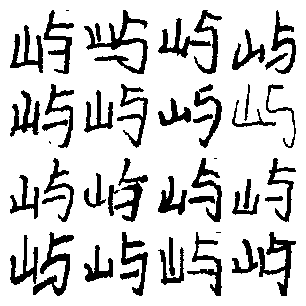 屿屿屿屿
屿屿屿屿
屿屿屿屿
屿屿屿屿